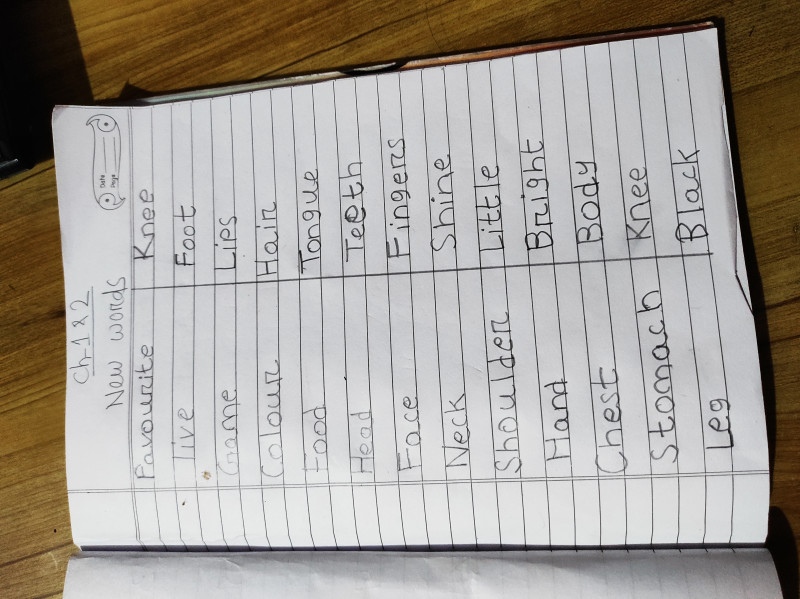 Date
Page
Ch-1 & 2
New words
Favourite Knee
live Foot
Game Lips
Colour Hair
Food Tongue
Head Teeth
Face Fingers
Neck Shine
Shoulder Little
Hand Bright
Chest Body
Stomach Knee
Leg Black